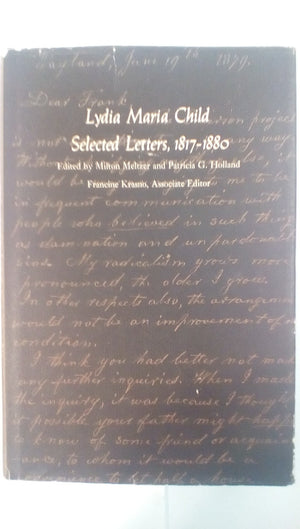 Wayland, June 19th 1879.
Dear Frank,
Lydia Maria Child
Selected Letters, 1817-1880
Edited by Milton Meltzer and Patricia G. Holland
Francine Krasno, Associate Editor
project
is not
any way
it
would be to me to be
in frequent communication with
people who believed in such things
as damnation and unpardonable
sins. My radicalism grows more
pronounced, the older I grow.
In other respects also, the arrangement
would not be an improvement of my
condition.
I think you had better not make
any further inquiries. When I made
the inquiry, it was because I thought
it possible your father might happen
to know of some friend or acquain
-ance, to whom it would be a
to let half a house